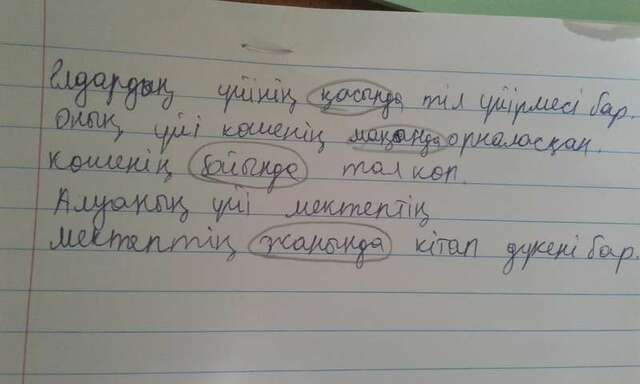 Елдардың үйінің қасында тіл үйірмесі бар.
Оның үйі көшенің маңында орналасқан.
Көшенің бойында тал көп.
Алуаның үйі мектептің
мектептің жанында кітап дүкені бар.